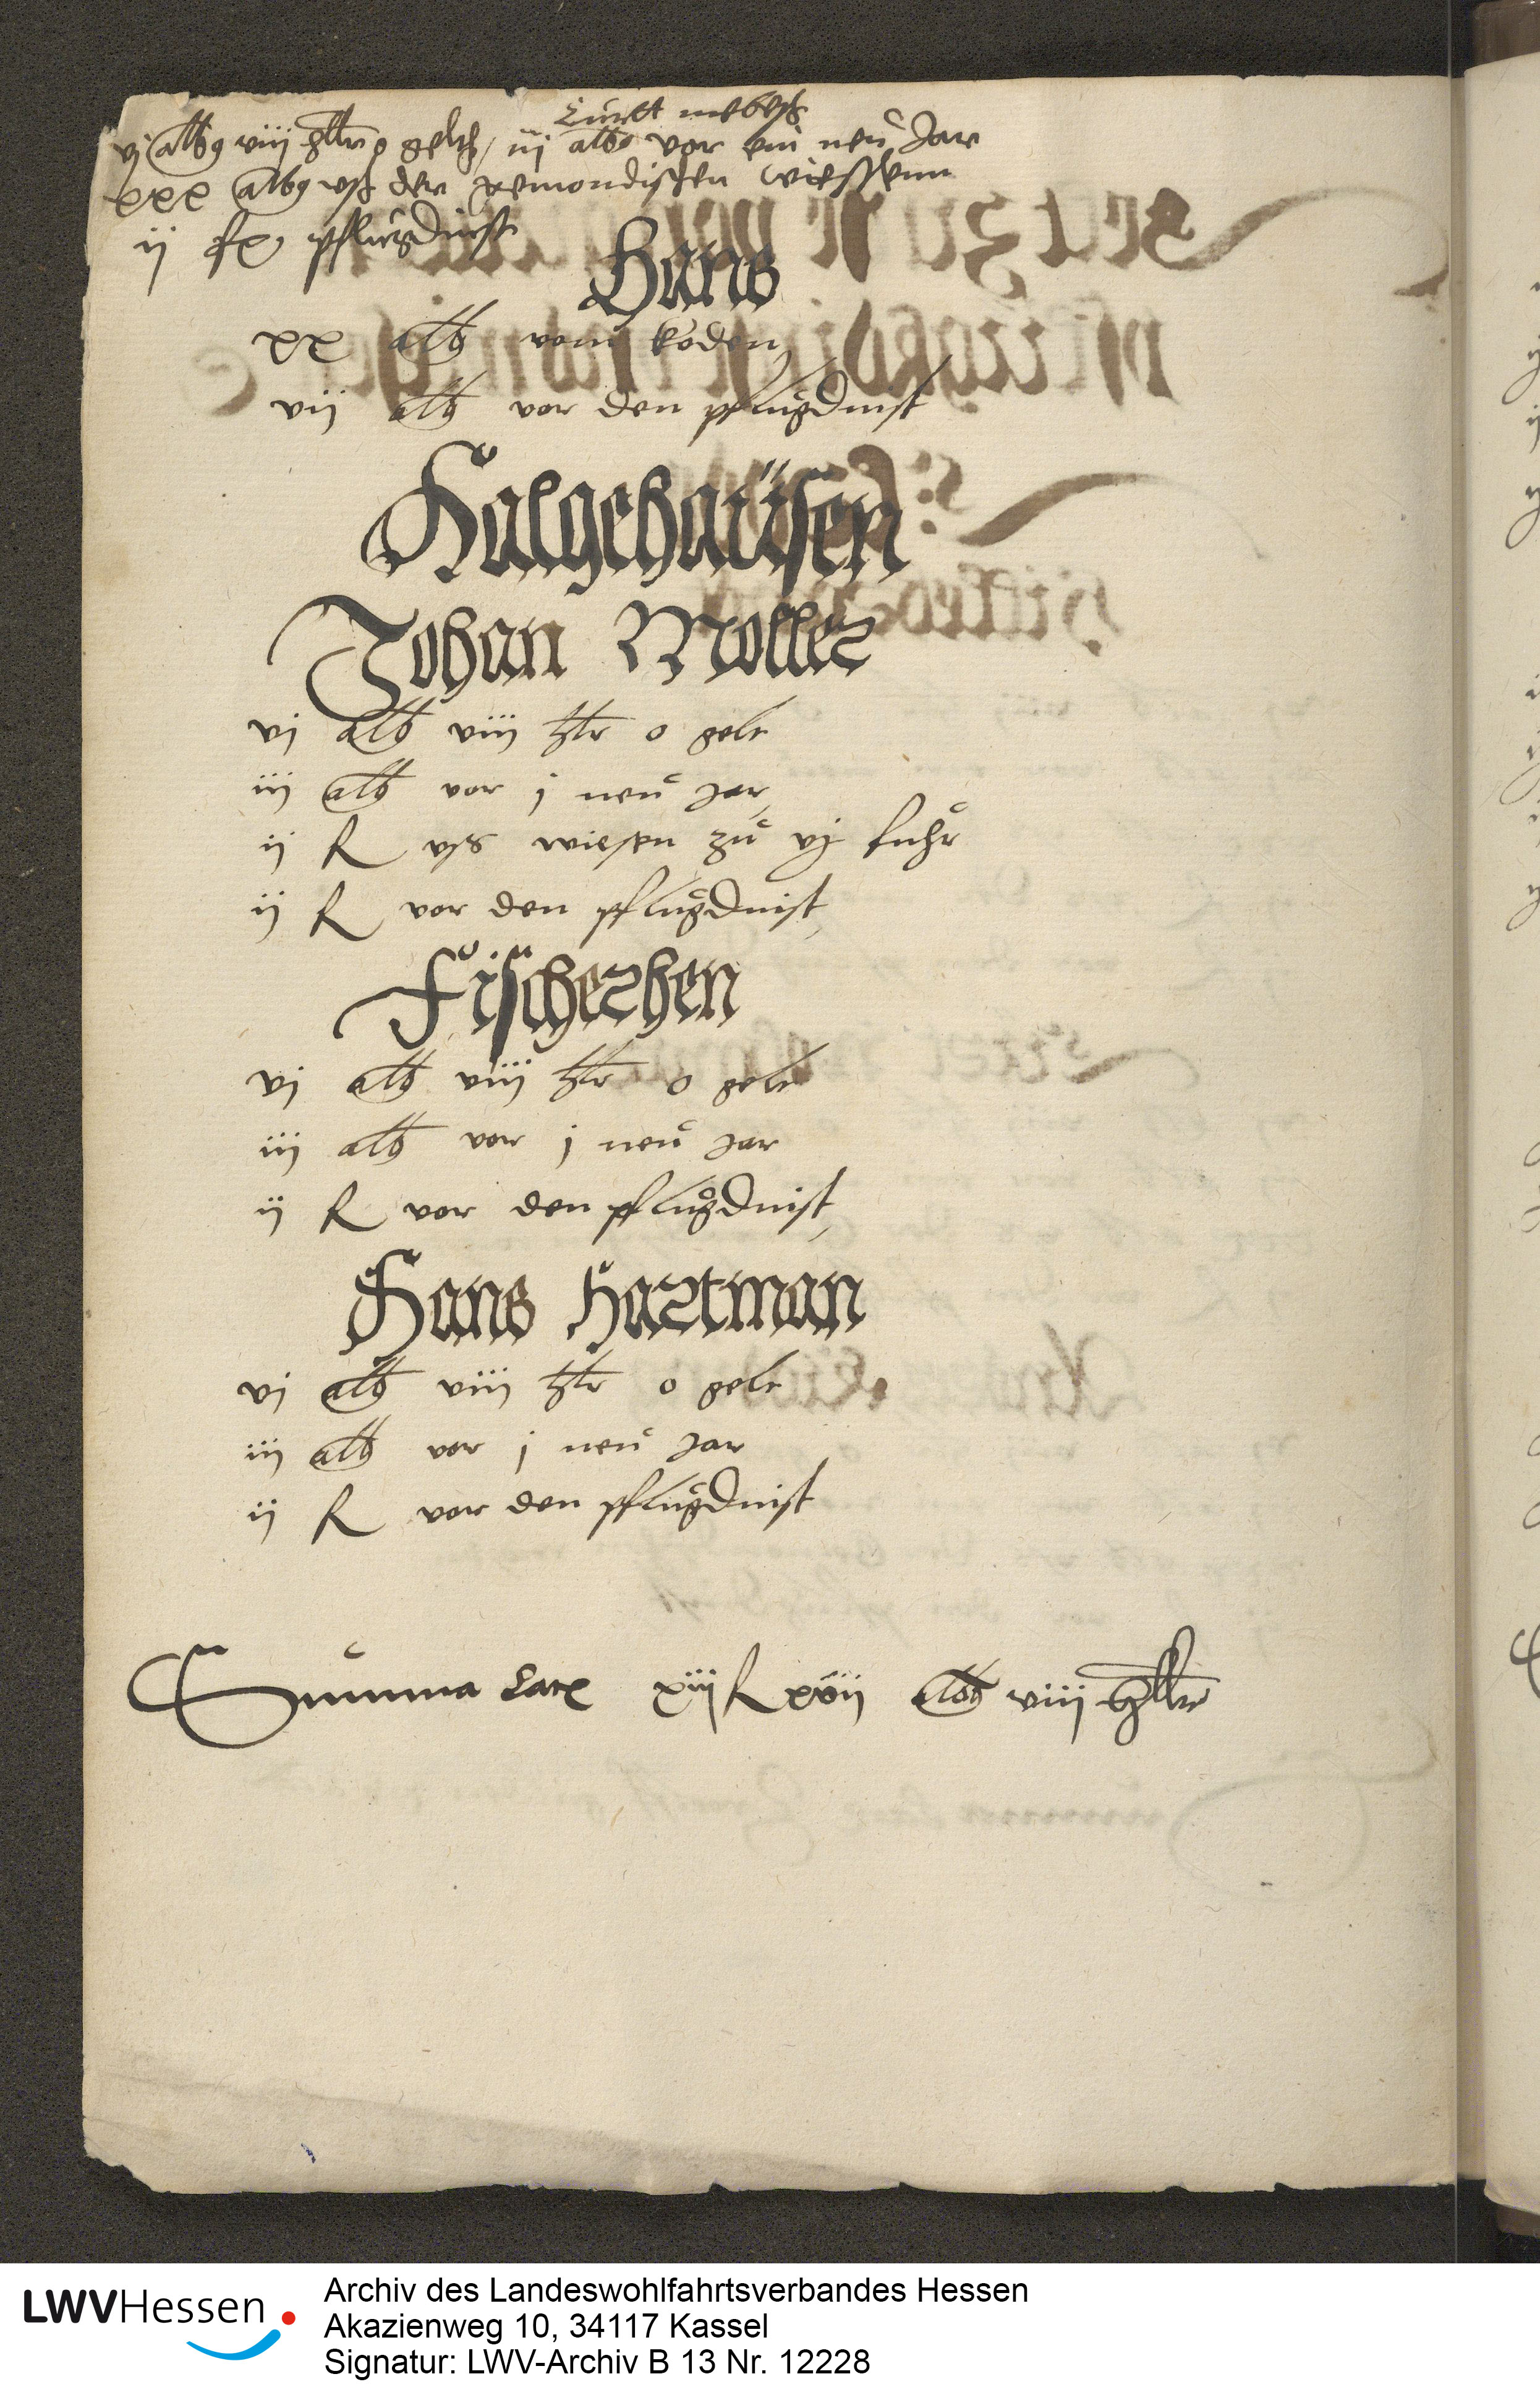 Curtt webeß
vj albg viij hllr o geltz, iij albg vor ein neü Jar
xxx albg vsß der remondisschen wiessenn
ij fl pflügdinst
Hans
xx alb vom Roden
vij alb vor den pflügdinst
Halgehaüsen
Johan Moller
vj alb viij hlr o gelt
iij alb vor j neü Jar
ij fl vss wiesen zü vj fuhr
ij fl vor den pflügdinst
Fischerhen
vj alb viij hlr o gelt
iij alb vor j neü Jar
ij fl vor den pflügdinst
Hans Hartman
vj alb viij hlr o gelt
iij alb vor j neü Jar
ij fl vor den pflügdinst
Summa Latx xiij fl xvij alb viij hllr
LWVHessen
Archiv des Landeswohlfahrtsverbandes Hessen
Akazienweg 10, 34117 Kassel
Signatur: LWV-Archiv B 13 Nr. 12228